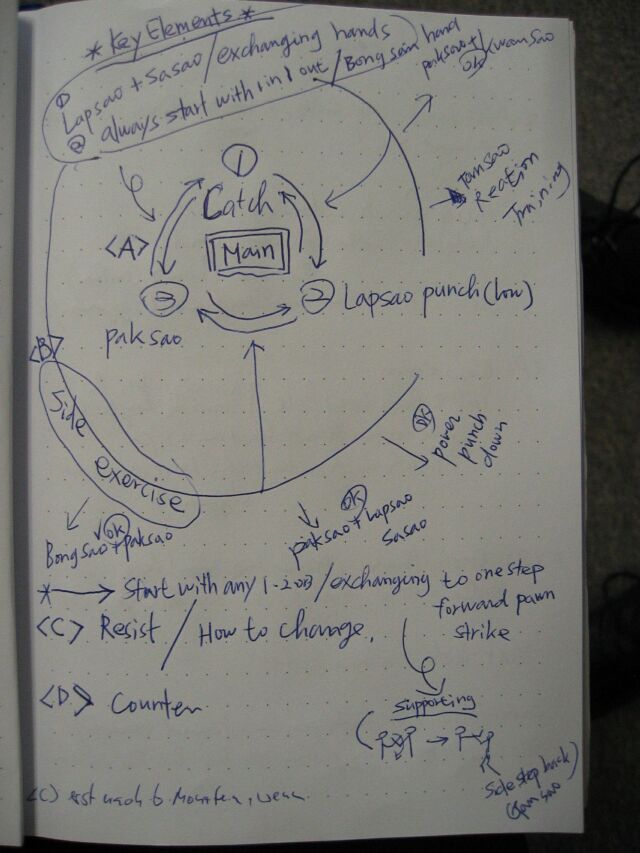 * Key Elements *
① Lapsao + Sasao / exchanging hands
② always start with 1 in 1 out / Bongsam hand
paksao +
OK
Tamsao
Reation
Training
①
Catch
<A>
Main
③
② Lapsao punch (low)
paksao
<B>
Side
exercise
OK
power
punch
down
OK
paksao + Lapsao
Sasao
OK
Bongsao + paksao
* → Start with any 1.2 or 3 / exchanging to one step
forward pawn
strike
<C> Resist / How to change,
<D> Counter
Supporting
Side step back
<C)